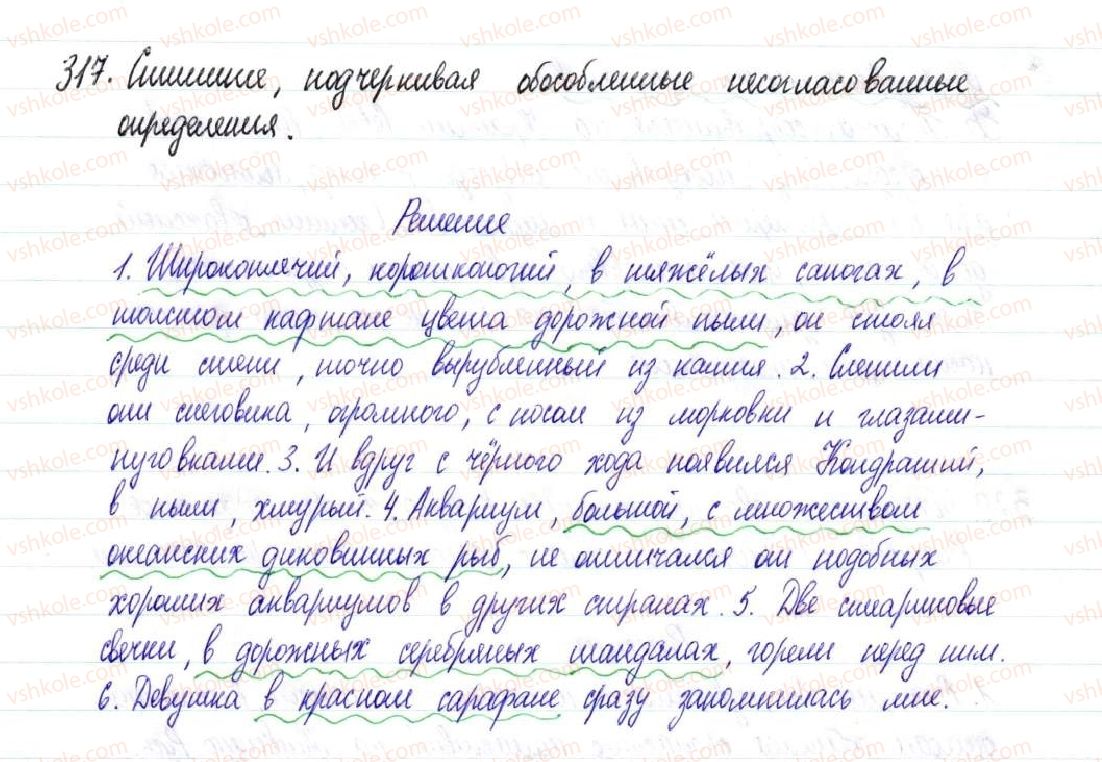 317. Спишите, подчеркивая обособленные несогласованные
определения.
Решение
1. Широкоплечий, корошконогий, в тяжёлых сапогах, в
толстом кафтане цвета дорожной пыли, он стоял
среди степи, точно вырубленный из камня. 2. Слепили
они снеговика, огромного, с носом из морковки и глазами-
пуговками. 3. И вдруг с чёрного хода появился Кондратий,
в пыли, хмурый. 4. Аквариум, большой, с множеством
океанских диковинных рыб, не отличался от подобных
хороших аквариумов в других странах. 5. Две стариновые
свечки, в дорожных серебряных шандалах, горели перед ним.
6. Девушка в красном сарафане сразу запомнилась мне.